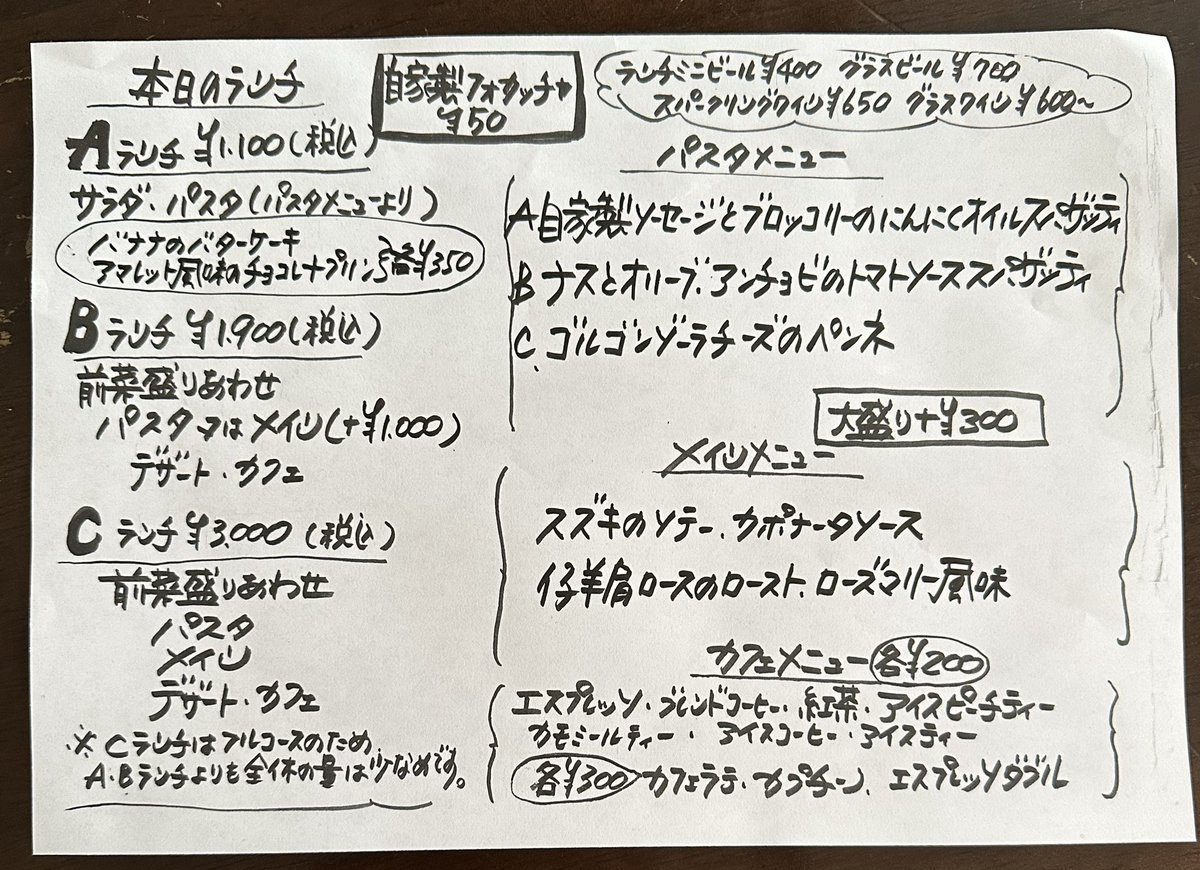 本日のランチ
Aランチ ¥1,100(税込)
サラダ・パスタ(パスタメニューより)
バナナのバターケーキ
アマレット風味のチョコレートプリン 各¥350
Bランチ ¥1,900(税込)
前菜盛りあわせ
パスタ又はメイン(+¥1,000)
デザート・カフェ
Cランチ ¥3,000(税込)
前菜盛りあわせ
パスタ
メイン
デザート・カフェ
※Cランチはフルコースのため
A・Bランチよりも全体の量は少なめです。
自家製フォカッチャ
¥50
ランチミニビール¥400 グラスビール¥700
スパークリングワイン¥650 グラスワイン¥600〜
パスタメニュー
A 自家製ソーセージとブロッコリーのにんにくオイルスパゲッティ
B ナスとオリーブ、アンチョビのトマトソーススパゲッティ
C、ゴルゴンゾーラチーズのペンネ
大盛り+¥300
メインメニュー
スズキのソテー、カポナータソース
仔羊肩ロースのロースト、ローズマリー風味
カフェメニュー 各¥200
エスプレッソ・ブレンドコーヒー・紅茶・アイスピーチティー
カモミールティー・アイスコーヒー・アイスティー
各¥300 カフェラテ・カプチーノ、エスプレッソダブル